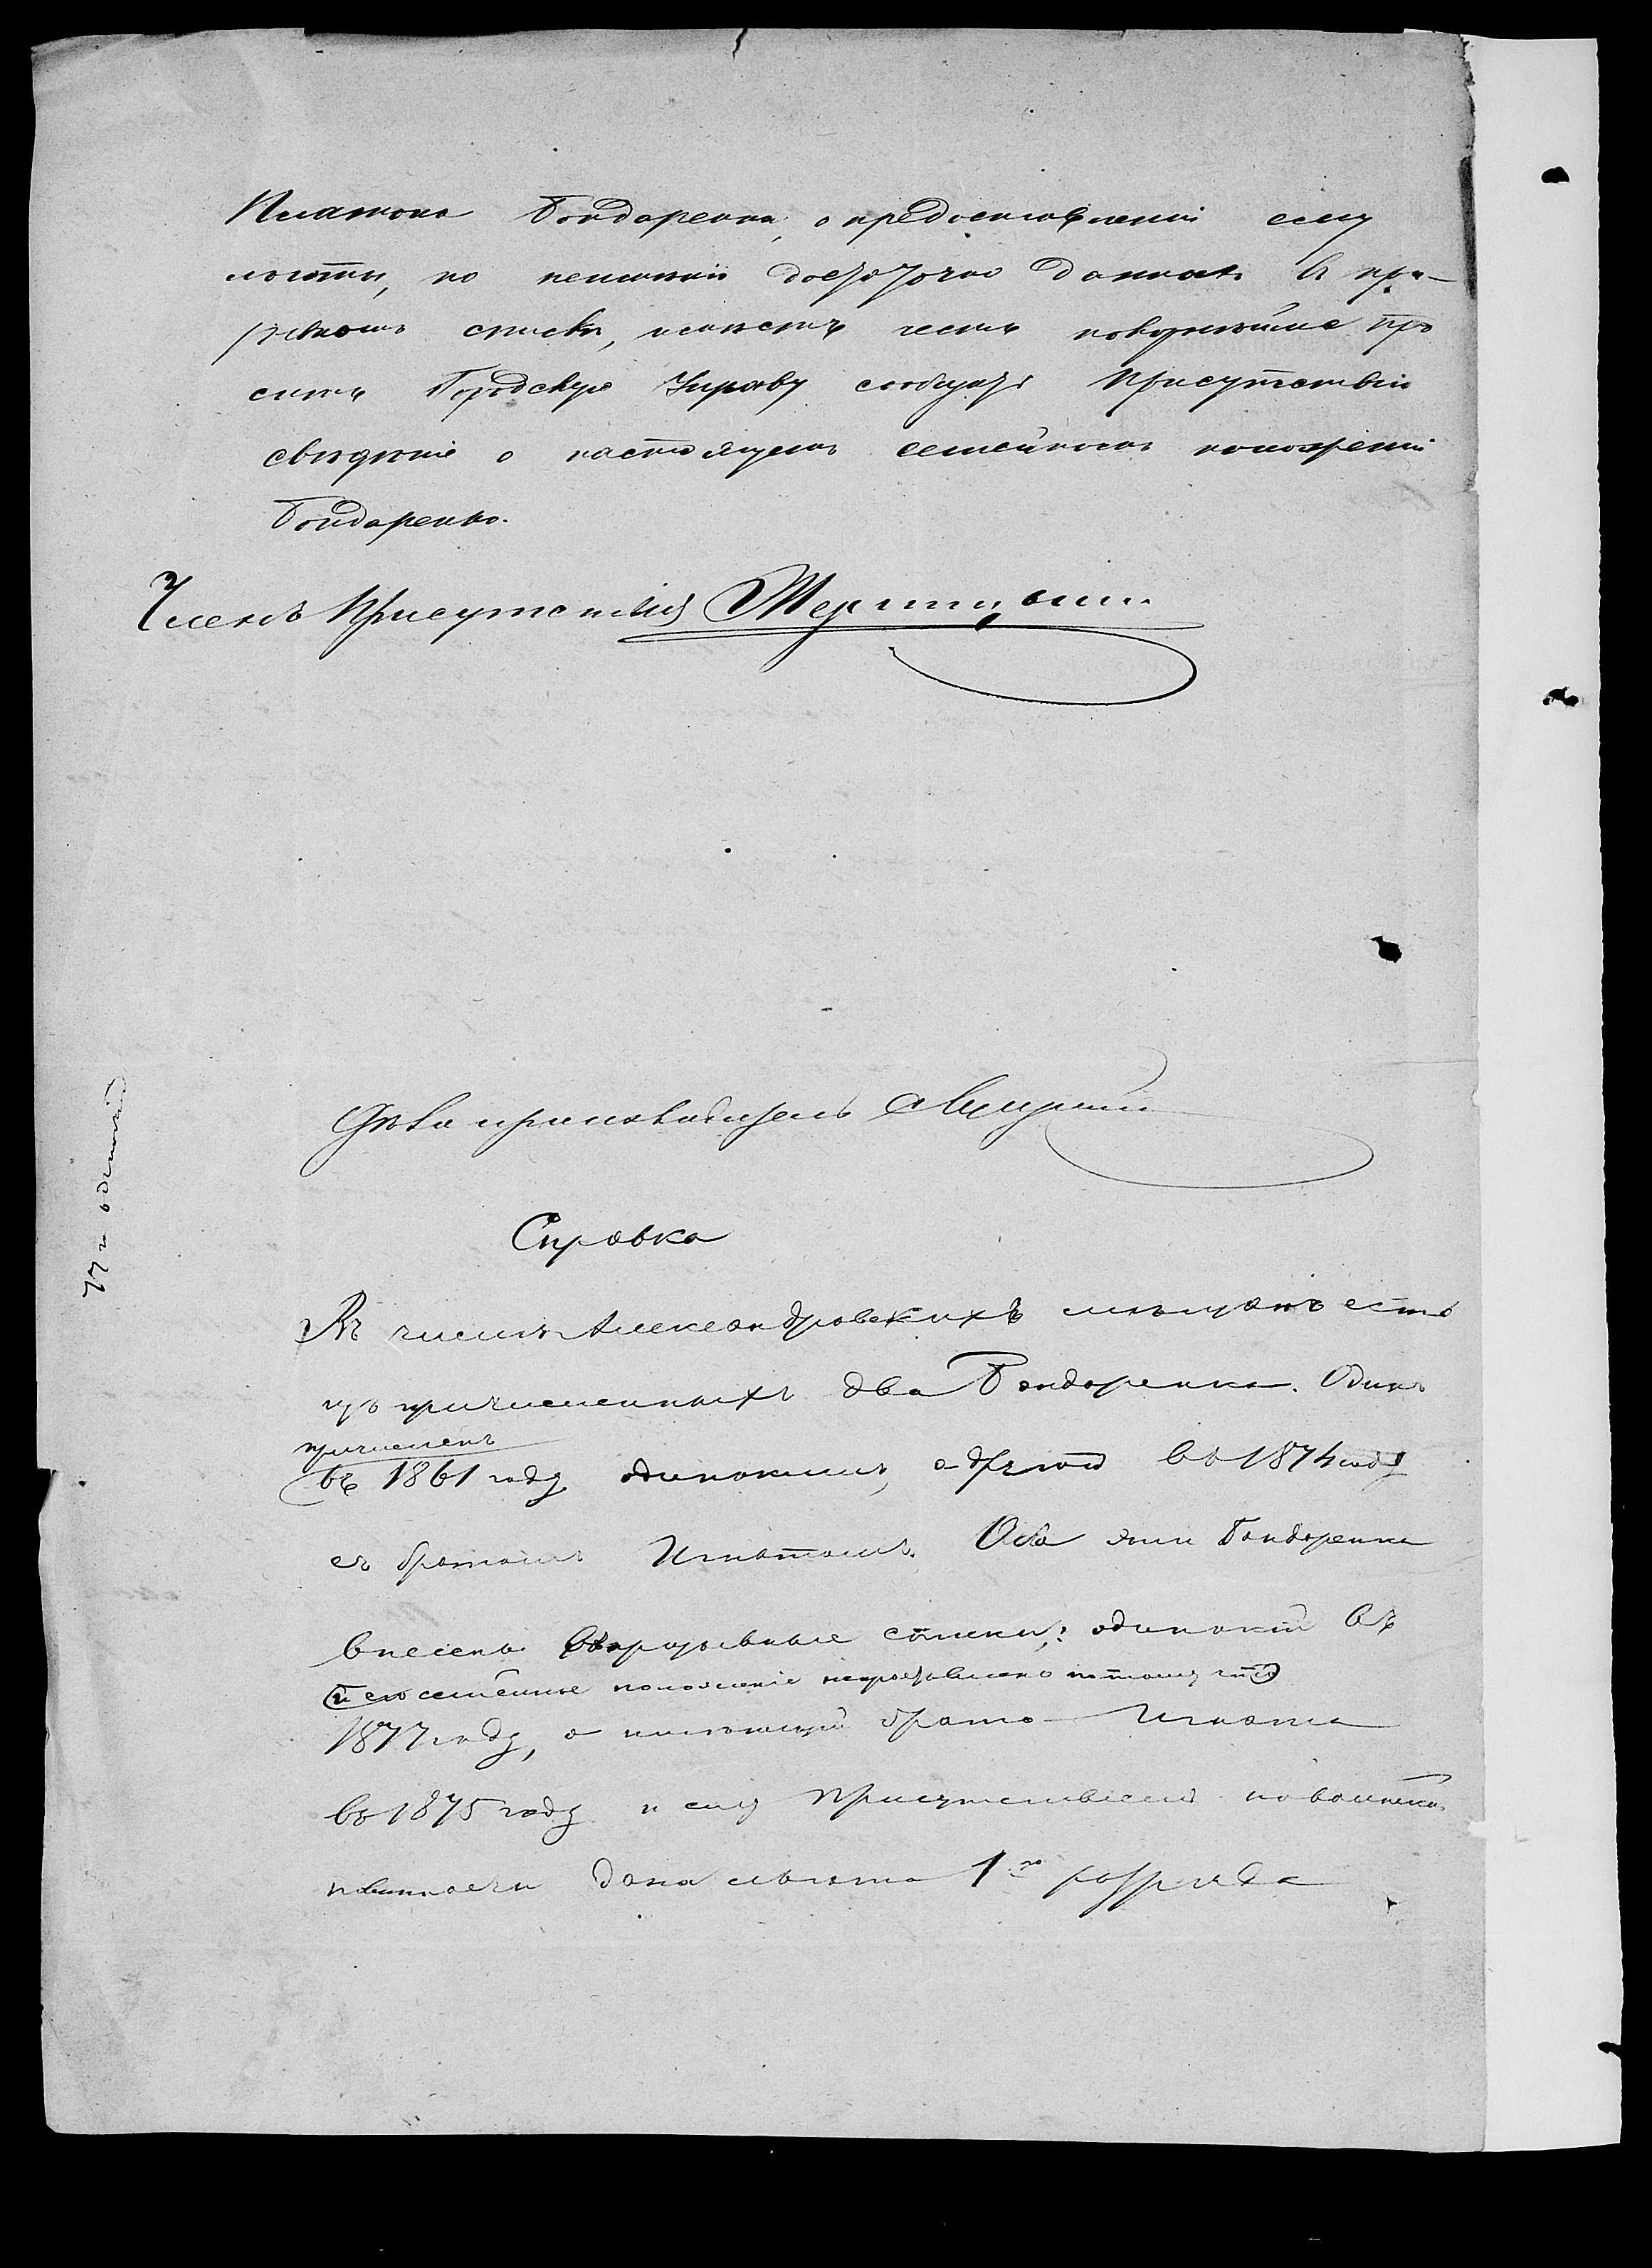 Платона Бондаренка, о предоставленіи ему
льготы, по неимѣнію достаточно данныхъ въ при-
зывномъ спискѣ, имѣетъ честь покорнѣйше про
сить Городскую Управу сообщить Присутствію
свѣдѣніе о настоящемъ семейномъ положеніи
Бондаренко.
Членъ Присутствія
Дѣлопроизводитель
Справка
Въ числѣ Александровскихъ мѣщанъ есть
изъ причисленныхъ два Бондаренка. Одинъ
причисленъ
въ 1861 году одинокимъ, а другой въ 1874 году
съ братомъ Игнатомъ. Оба эти Бондаренка
внесены въ призывные списки: одинокій въ
и его семейное положеніе непроставлено потому что
1877 году, а имѣющій брата Игната
въ 1875 году и ему Присутствіемъ по воинской
повинности дана льгота 1го разряда